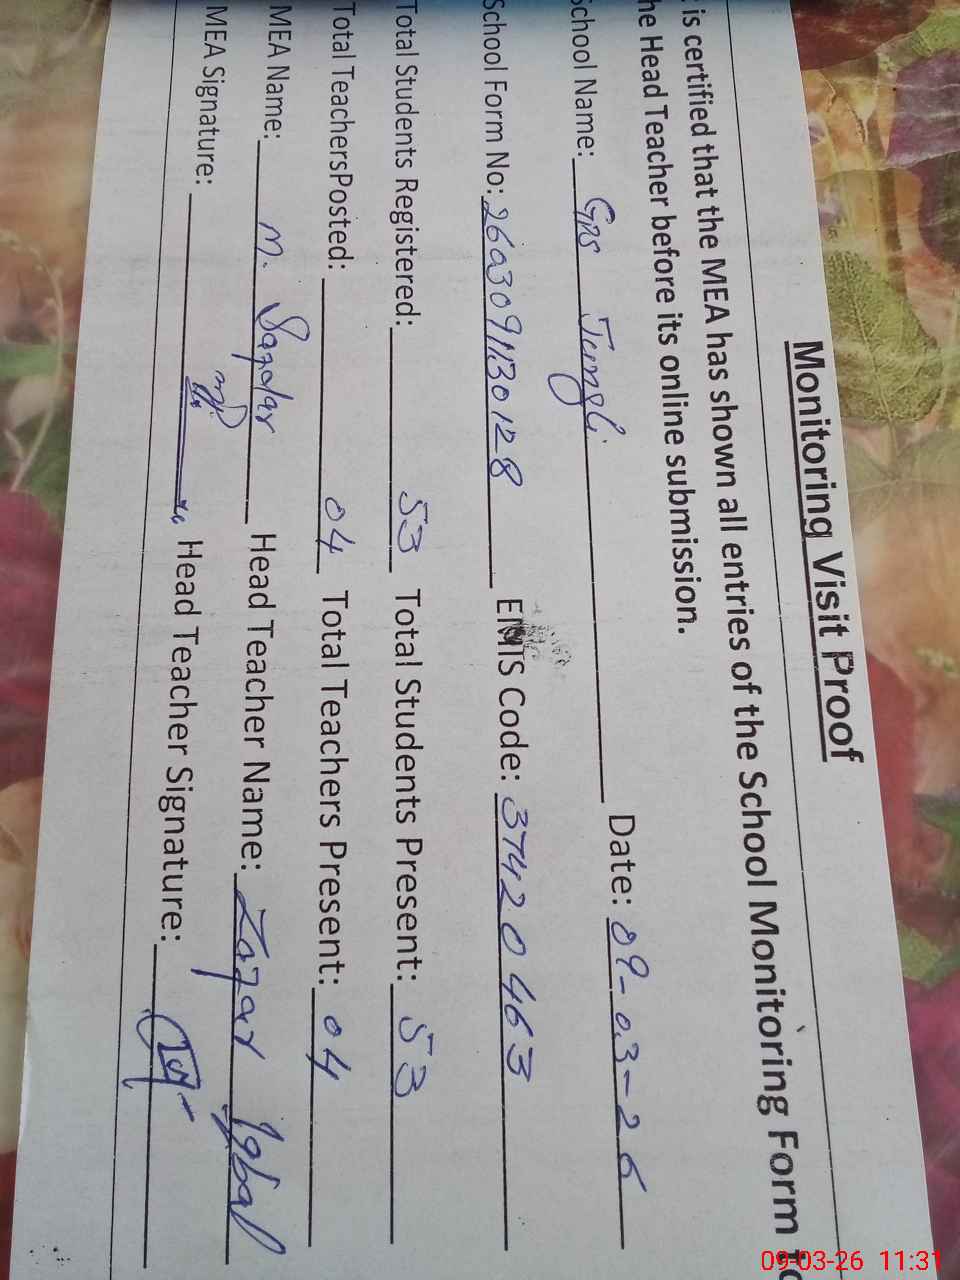 Monitoring Visit Proof
is certified that the MEA has shown all entries of the School Monitoring Form to
he Head Teacher before its online submission.
School Name: Gps Jungli Date: 09-03-26
School Form No: 2603091130128 EMIS Code: 37420463
Total Students Registered: 53 Total Students Present: 53
Total TeachersPosted: 04 Total Teachers Present: 04
MEA Name: M. Safdar Head Teacher Name: Zafar Iqbal
MEA Signature: Head Teacher Signature:
09-03-26 11:31